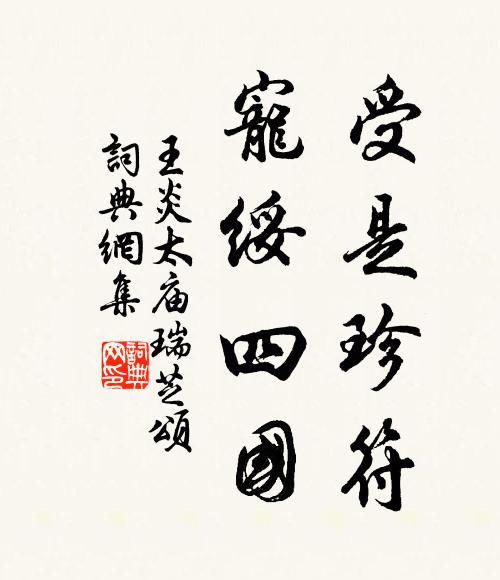 受是珍符
寵綏四國
王炎太庙瑞芝頌
詞典網集
詞典
网印